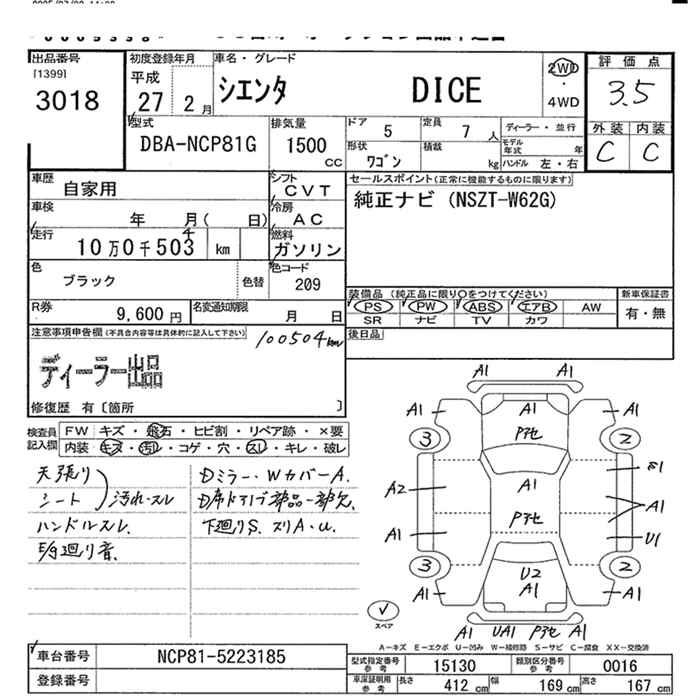 出品番号
[1399]
3018
初度登録年月
平成
27 年 2 月
車名・グレード
シエンタ DICE
2WD
・
4WD
評価点
3.5
外装 内装
C C
型式
DBA-NCP81G
排気量
1500 cc
ドア 5
定員 7 人
ディーラー・並行
形状 ワゴン
積載 kg
モデル年式 年
ハンドル 左・右
車歴 自家用
シフト CVT
セールスポイント(正常に機能するものに限ります)
純正ナビ (NSZT-W62G)
車検 年 月( 日)
冷房 AC
走行 10万0千503 km
4
燃料 ガソリン
色 ブラック 色替
色コード 209
装備品 (純正品に限り○をつけてください)
新車保証書
PS PW ABS エアB AW
SR ナビ TV カワ
有・無
R券 9,600 円
名変通知期限 月 日
後日品
注意事項申告欄(不具合内容等は具体的に記入して下さい)
100504km
ディーラー出品
修復歴 有〔箇所 〕
検査員記入欄
FW キズ・飛石・ヒビ割・リペア跡・×要
内装 キズ・汚レ・コゲ・穴・スレ・キレ・破レ
天張り
シート 汚れ・スレ
ハンドルスレ
Dミラー・Wカバー A.
下廻りS. スリA・U.
A1 A1
A1 A1 A1
3 2
A2 A1 A1
A1 U1
3 2
U2
A1 A1 A1
A1 UA1 A1
スペア
A-キズ E-エクボ U-凹み W-補修跡 S-サビ C-腐食 XX-交換済
車台番号 NCP81-5223185
登録番号
型式指定番号 参考 15130
類別区分番号 参考 0016
車庫証明用 参考 長さ 412 cm 幅 169 cm 高さ 167 cm